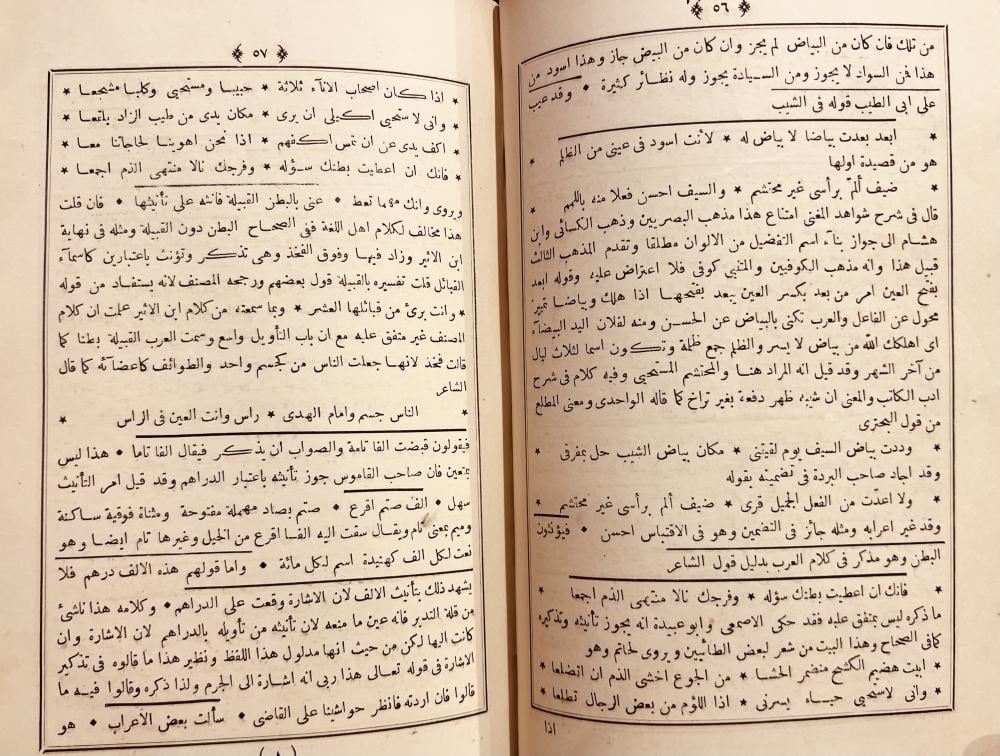 ٥٦
من تلك فان كان من البياض لم يجز وان كان من البيض جاز وهذا اسود من
هذا فمن السواد لا يجوز ومن السيادة يجوز وله نظائر كثيرة * وقد عيب
على ابى الطيب قوله فى الشيب
ابعد بعدت بياضا لا بياض له * لأنت اسود فى عينى من الظلم *
هو من قصيدة اولها
* ضيف ألمّ برأسى غير محتشم * والسيف احسن فعلا منه باللمم *
قال فى شرح شواهد المغنى امتناع هذا مذهب البصريين وذهب الكسائى وابن
هشام الى جواز بناء اسم التفضيل من الالوان مطلقا وتقدم المذهب الثالث
قبيل هذا وانه مذهب الكوفيين والمتنبى كوفى فلا اعتراض عليه وقوله ابعد
بفتح العين امر من بعد بكسر العين يبعد بفتحها اذا هلك وبياضا تمييز
محول عن الفاعل والعرب تكنى بالبياض عن الحسن ومنه لفلان اليد البيضاء
اى اهلكك الله من بياض لا يسر والظلم جمع ظلمة وتكون اسما لثلاث ليال
من آخر الشهر وقد قيل انه المراد هنا والمحتشم المستحيى وفيه كلام فى شرح
ادب الكاتب والمعنى ان شيبه ظهر دفعة بغير تراخ كما قاله الواحدى ومعنى المطلع
من قول البحترى
* وددت بياض السيف يوم لقيتنى * مكان بياض الشيب حل بمفرقى *
وقد اجاد صاحب البردة فى تضمينه بقوله
* ولا اعدّت من الفعل الجميل قرى * ضيف ألم برأسى غير محتشم *
وقد غير اعرابه ومثله جائز فى التضمين وهو فى الاقتباس احسن * فيؤنثون
البطن وهو مذكر فى كلام العرب بدليل قول الشاعر
* فانك ان اعطيت بطنك سؤله * وفرجك نالا منتهى الذم اجمعا *
ما ذكره ليس بمتفق عليه فقد حكى الاصمعى وابو عبيدة انه يجوز تأنيثه وتذكيره
كما فى الصحاح وهذا البيت من شعر لبعض الطائيين ويروى لحاتم وهو
* ابيت هضيم الكشح منضمر الحشا * من الجوع اخشى الذم ان اتضلعا *
* وانى لاستحيى حياء يسرنى * اذا اللؤم من بعض الرجال تطلعا *
اذا
٥٧
* اذا كان اصحاب الاناء ثلاثة * حبيبا ومستحيى وكلبا مشجعا *
* وانى لاستحيى اكيلى ان يرى * مكان يدى من طيب الزاد بلقعا *
* اكف يدى عن ان تمس اكفهم * اذا نحن اهوينا لحاجاتنا معا *
* فانك ان اعطيت بطنك سؤله * وفرجك نالا منتهى الذم اجمعا *
ويروى وانك مهما تعط * عنى بالبطن القبيلة فانثه على تأنيثها * فان قلت
هذا مخالف لكلام اهل اللغة ففى الصحاح البطن دون القبيلة ومثله فى نهاية
ابن الاثير وزاد فيها وفوق الفخذ وهى تذكر وتؤنث باعتبارين كاسماء
القبائل قلت تفسيره بالقبيلة قول بعضهم ورجحه المصنف لانه يستفاد من قوله
* وانت برئ من قبائلها العشر * وبما سمعته من كلام ابن الاثير علمت ان كلام
المصنف غير متفق عليه مع ان باب التأويل واسع وسمت العرب القبيلة بطنا كما
قالت فخذ لانها جعلت الناس من كجسم واحد والطوائف كاعضائه كما قال
الشاعر
* الناس جسم وامام الهدى * راس وانت العين فى الراس *
فيقولون قبضت الفا تامة والصواب ان يذكر فيقال الفا تاما * هذا ليس
بمتعين فان صاحب القاموس جوز تأنيثه باعتبار الدراهم وقد قيل امر التأنيث
سهل * الف صتم اقرع * صتم بصاد مهملة مفتوحة ومثناة فوقية ساكنة
وميم بمعنى تام ويقال سقت اليه الفا اقرع من الخيل وغيرها تام ايضا وهو
نعت لكل الف كهنيدة اسم لكل مائة * واما قولهم هذه الالف درهم فلا
يشهد ذلك بتأنيث الالف لان الاشارة وقعت على الدراهم * وكلامه هذا ناشئ
من قلة التدبر فانه عين ما منعه لان تأنيثه من تأويله بالدراهم لان الاشارة وان
كانت اليها لكن من حيث انها مدلول هذا اللفظ ونظير هذا ما قالوه فى تذكير
الاشارة فى قوله تعالى هذا ربى انه اشارة الى الجرم ولذا ذكره وقالوا فيه ما
قالوا فان اردته فانظر حواشينا على القاضى * سألت بعض الاعراب * هو